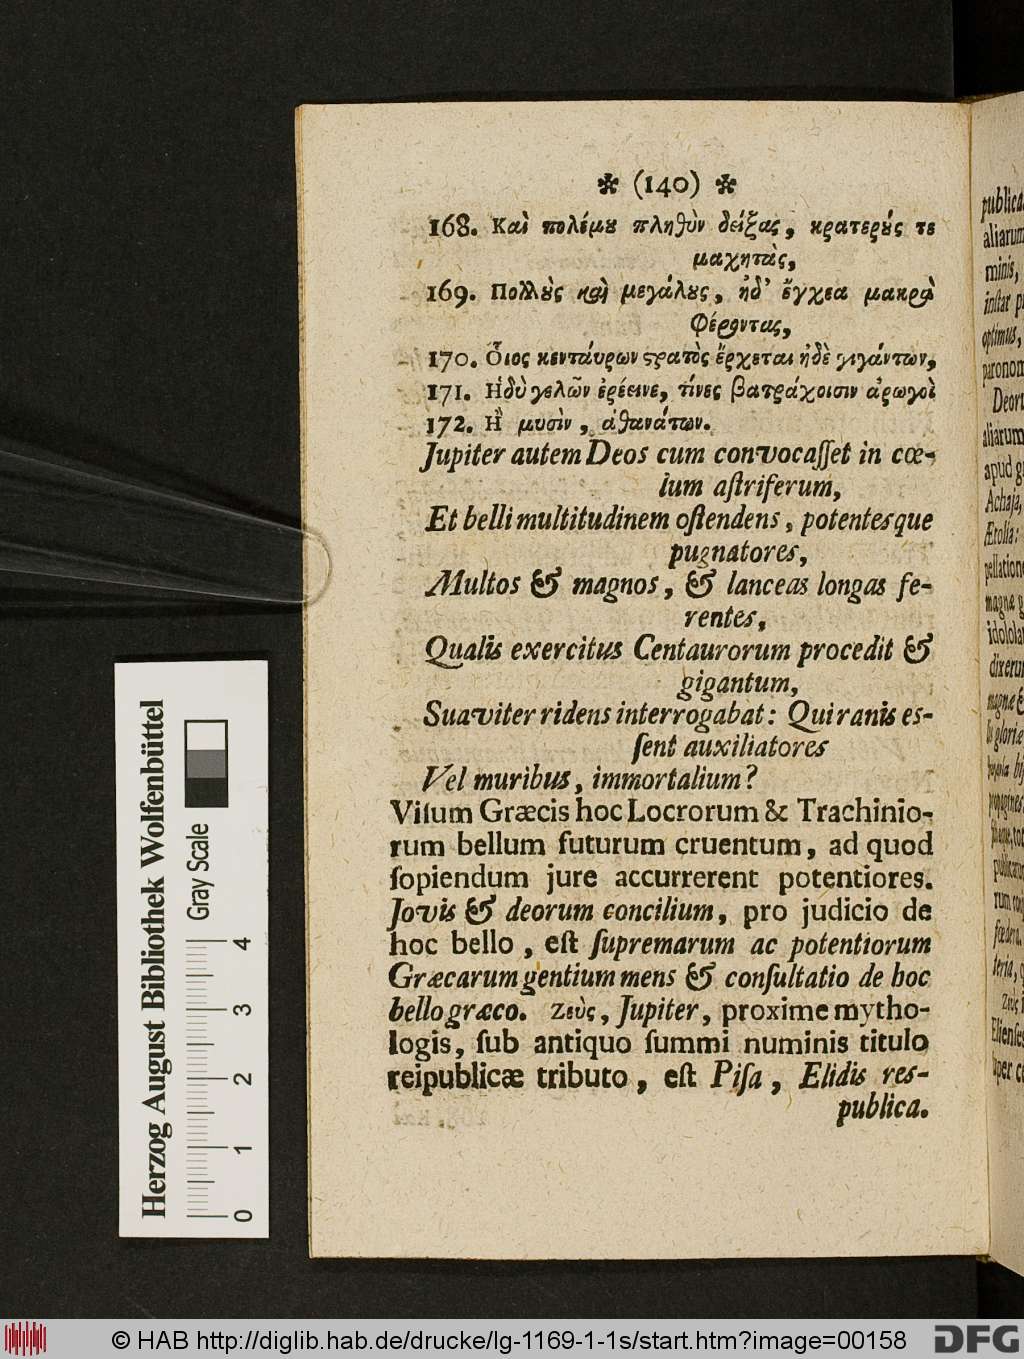 ✽ (140) ✽
168. Καὶ πολέμȣ πληθὺν δείξας, κρατερȣ́ς τε
μαχητὰς,
169. Πολλȣ̀ς καὶ μεγάλȣς, ἠδ᾽ ἔγχεα μακρὰ
φέροντας,
170. Ὅ͂ιος κενταύρων στρατὸς ἔρχεται ἠδὲ γιγάντων,
171. Ἡδὺ γελῶν ἐρέεινε, τίνες βατράχοισιν ἀρωγοὶ
172. Ἢ μυσὶν, ἀθανάτων.
Jupiter autem Deos cum convocaſſet in cœ-
lum aſtriferum,
Et belli multitudinem oſtendens, potentesque
pugnatores,
Multos & magnos, & lanceas longas fe-
rentes,
Qualis exercitus Centaurorum procedit &
gigantum,
Suaviter ridens interrogabat: Qui ranis es-
ſent auxiliatores
Vel muribus, immortalium?
Viſum Græcis hoc Locrorum & Trachinio-
rum bellum futurum cruentum, ad quod
ſopiendum jure accurrerent potentiores.
Jovis & deorum concilium, pro judicio de
hoc bello, eſt ſupremarum ac potentiorum
Græcarum gentium mens & conſultatio de hoc
bello græco. Ζεὺς, Jupiter, proxime mytho-
logis, ſub antiquo ſummi numinis titulo
reipublicæ tributo, eſt Piſa, Elidis res-
publica.
publica
aliarum
minis,
inſtar
optimus,
paronom
Deor
aliarum
apud
Achaja,
Ætolia:
pellation
magnæ
idolola
dixerun
gloriæ
Ζεὺς
Elienſes
Herzog August Bibliothek Wolfenbüttel
Gray Scale
0 1 2 3 4
© HAB http://diglib.hab.de/drucke/lg-1169-1-1s/start.htm?image=00158
DFG